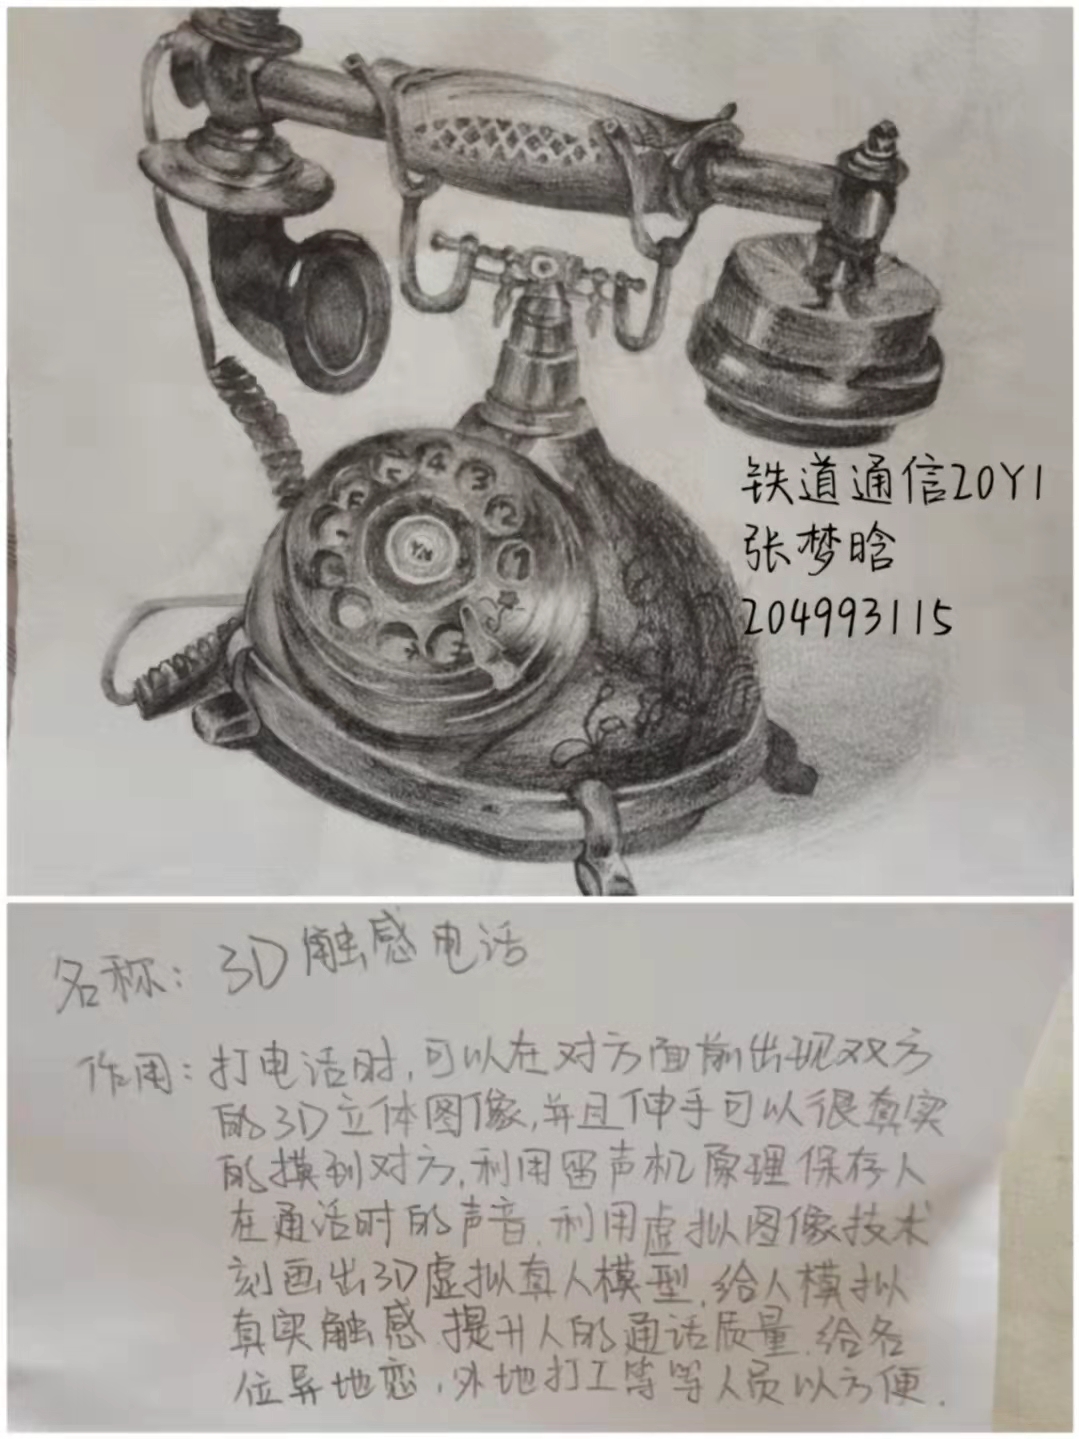 铁道通信20Y1
张梦晗
204993115
4
3
2
1
名称：3D触感电话
作用：打电话时，可以在对方面前出现双方
的3D立体图像，并且伸手可以很真实
的摸到对方，利用留声机原理保存人
在通话时的声音，利用虚拟图像技术
刻画出3D虚拟真人模型，给人模拟
真实触感 提升人的通话质量，给各
位异地恋，外地打工等等人员以方便．